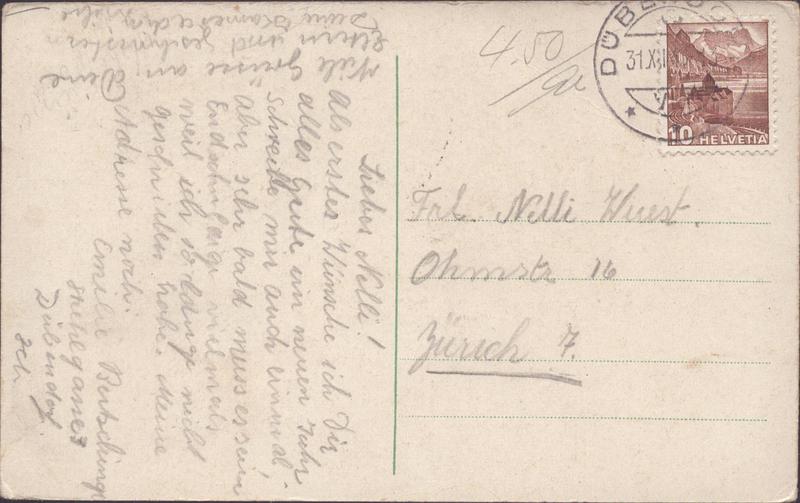 Liebes Nelli!
Als erstes Wünsche ich Dir
alles Gute im neuen Jahr
Schreibe mir auch einmal.
aber sehr bald muss es sein
Endschuldige vielmals
weil ich so lange nicht
geschrieben habe. Meine
Adresse noch:
Emilie
Dübendorf
Ich
Viele Grüsse an Deine
Eltern und Geschwister
Deine Kameradin
4.50
DÜBENDORF
31.XII
10 HELVETIA
Frl. Nelli Wuest.
Ohmstr 16
Zürich 7.